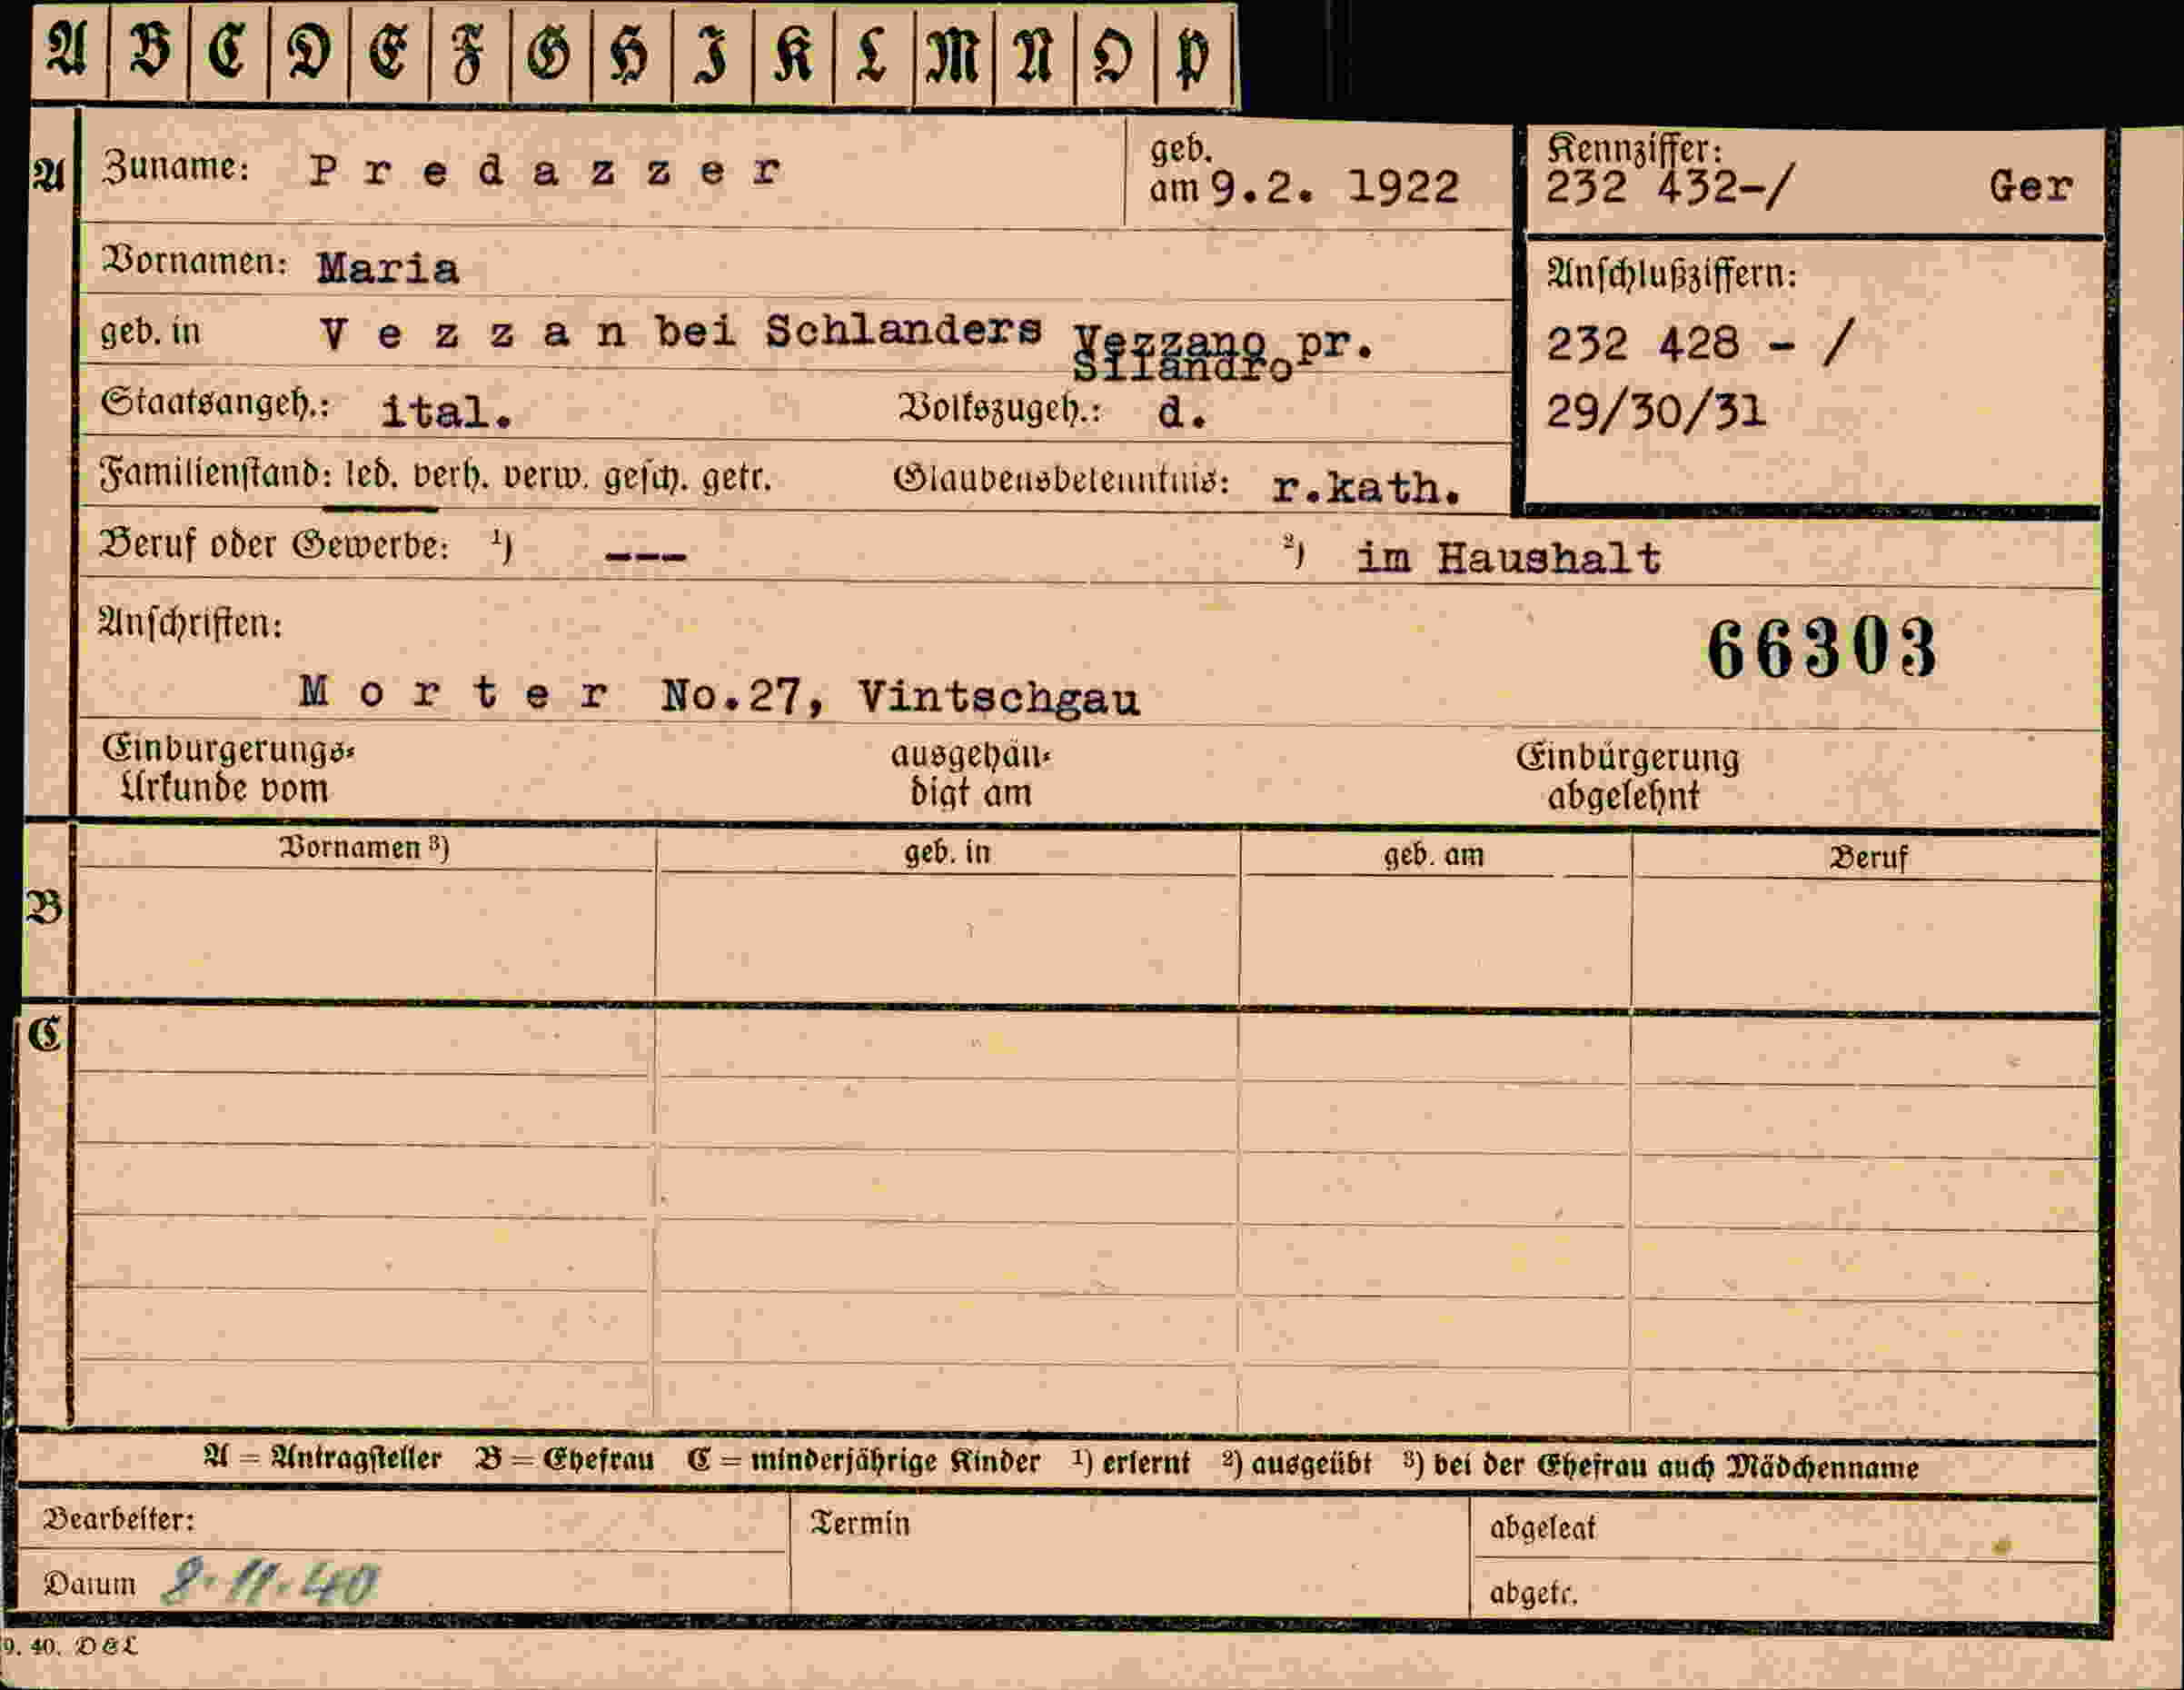 A B C D E F G H I K L M N O P
A Zuname: Predazzer geb. am 9.2. 1922 Kennziffer: 232 432-/ Ger
Vornamen: Maria
Anschlußziffern:
geb. in Vezzan bei Schlanders Vezzano pr. Silandro
232 428 - /
Staatsangeh.: ital. Volkszugeh.: d.
29/30/31
Familienstand: led. verh. verw. gesch. getr. Glaubensbekenntnis: r.kath.
Beruf oder Gewerbe: ¹) --- ²) im Haushalt
Anschriften:
66303
Morter No.27, Vintschgau
Einbürgerungs= ausgehän= Einbürgerung
Urkunde vom digt am abgelehnt
Vornamen ³) geb. in geb. am Beruf
B
C
A = Antragsteller B = Ehefrau C = minderjährige Kinder ¹) erlernt ²) ausgeübt ³) bei der Ehefrau auch Mädchenname
Bearbeiter: Termin abgelegt
Datum 8.11.40 abgetr.
9. 40. DGL